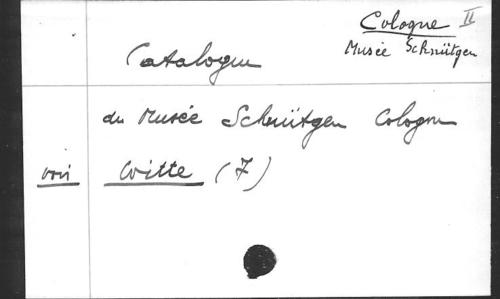 Cologne II
Musée Schnütgen
Catalogue
du Musée Schnütgen Cologne
voir Witte (7)